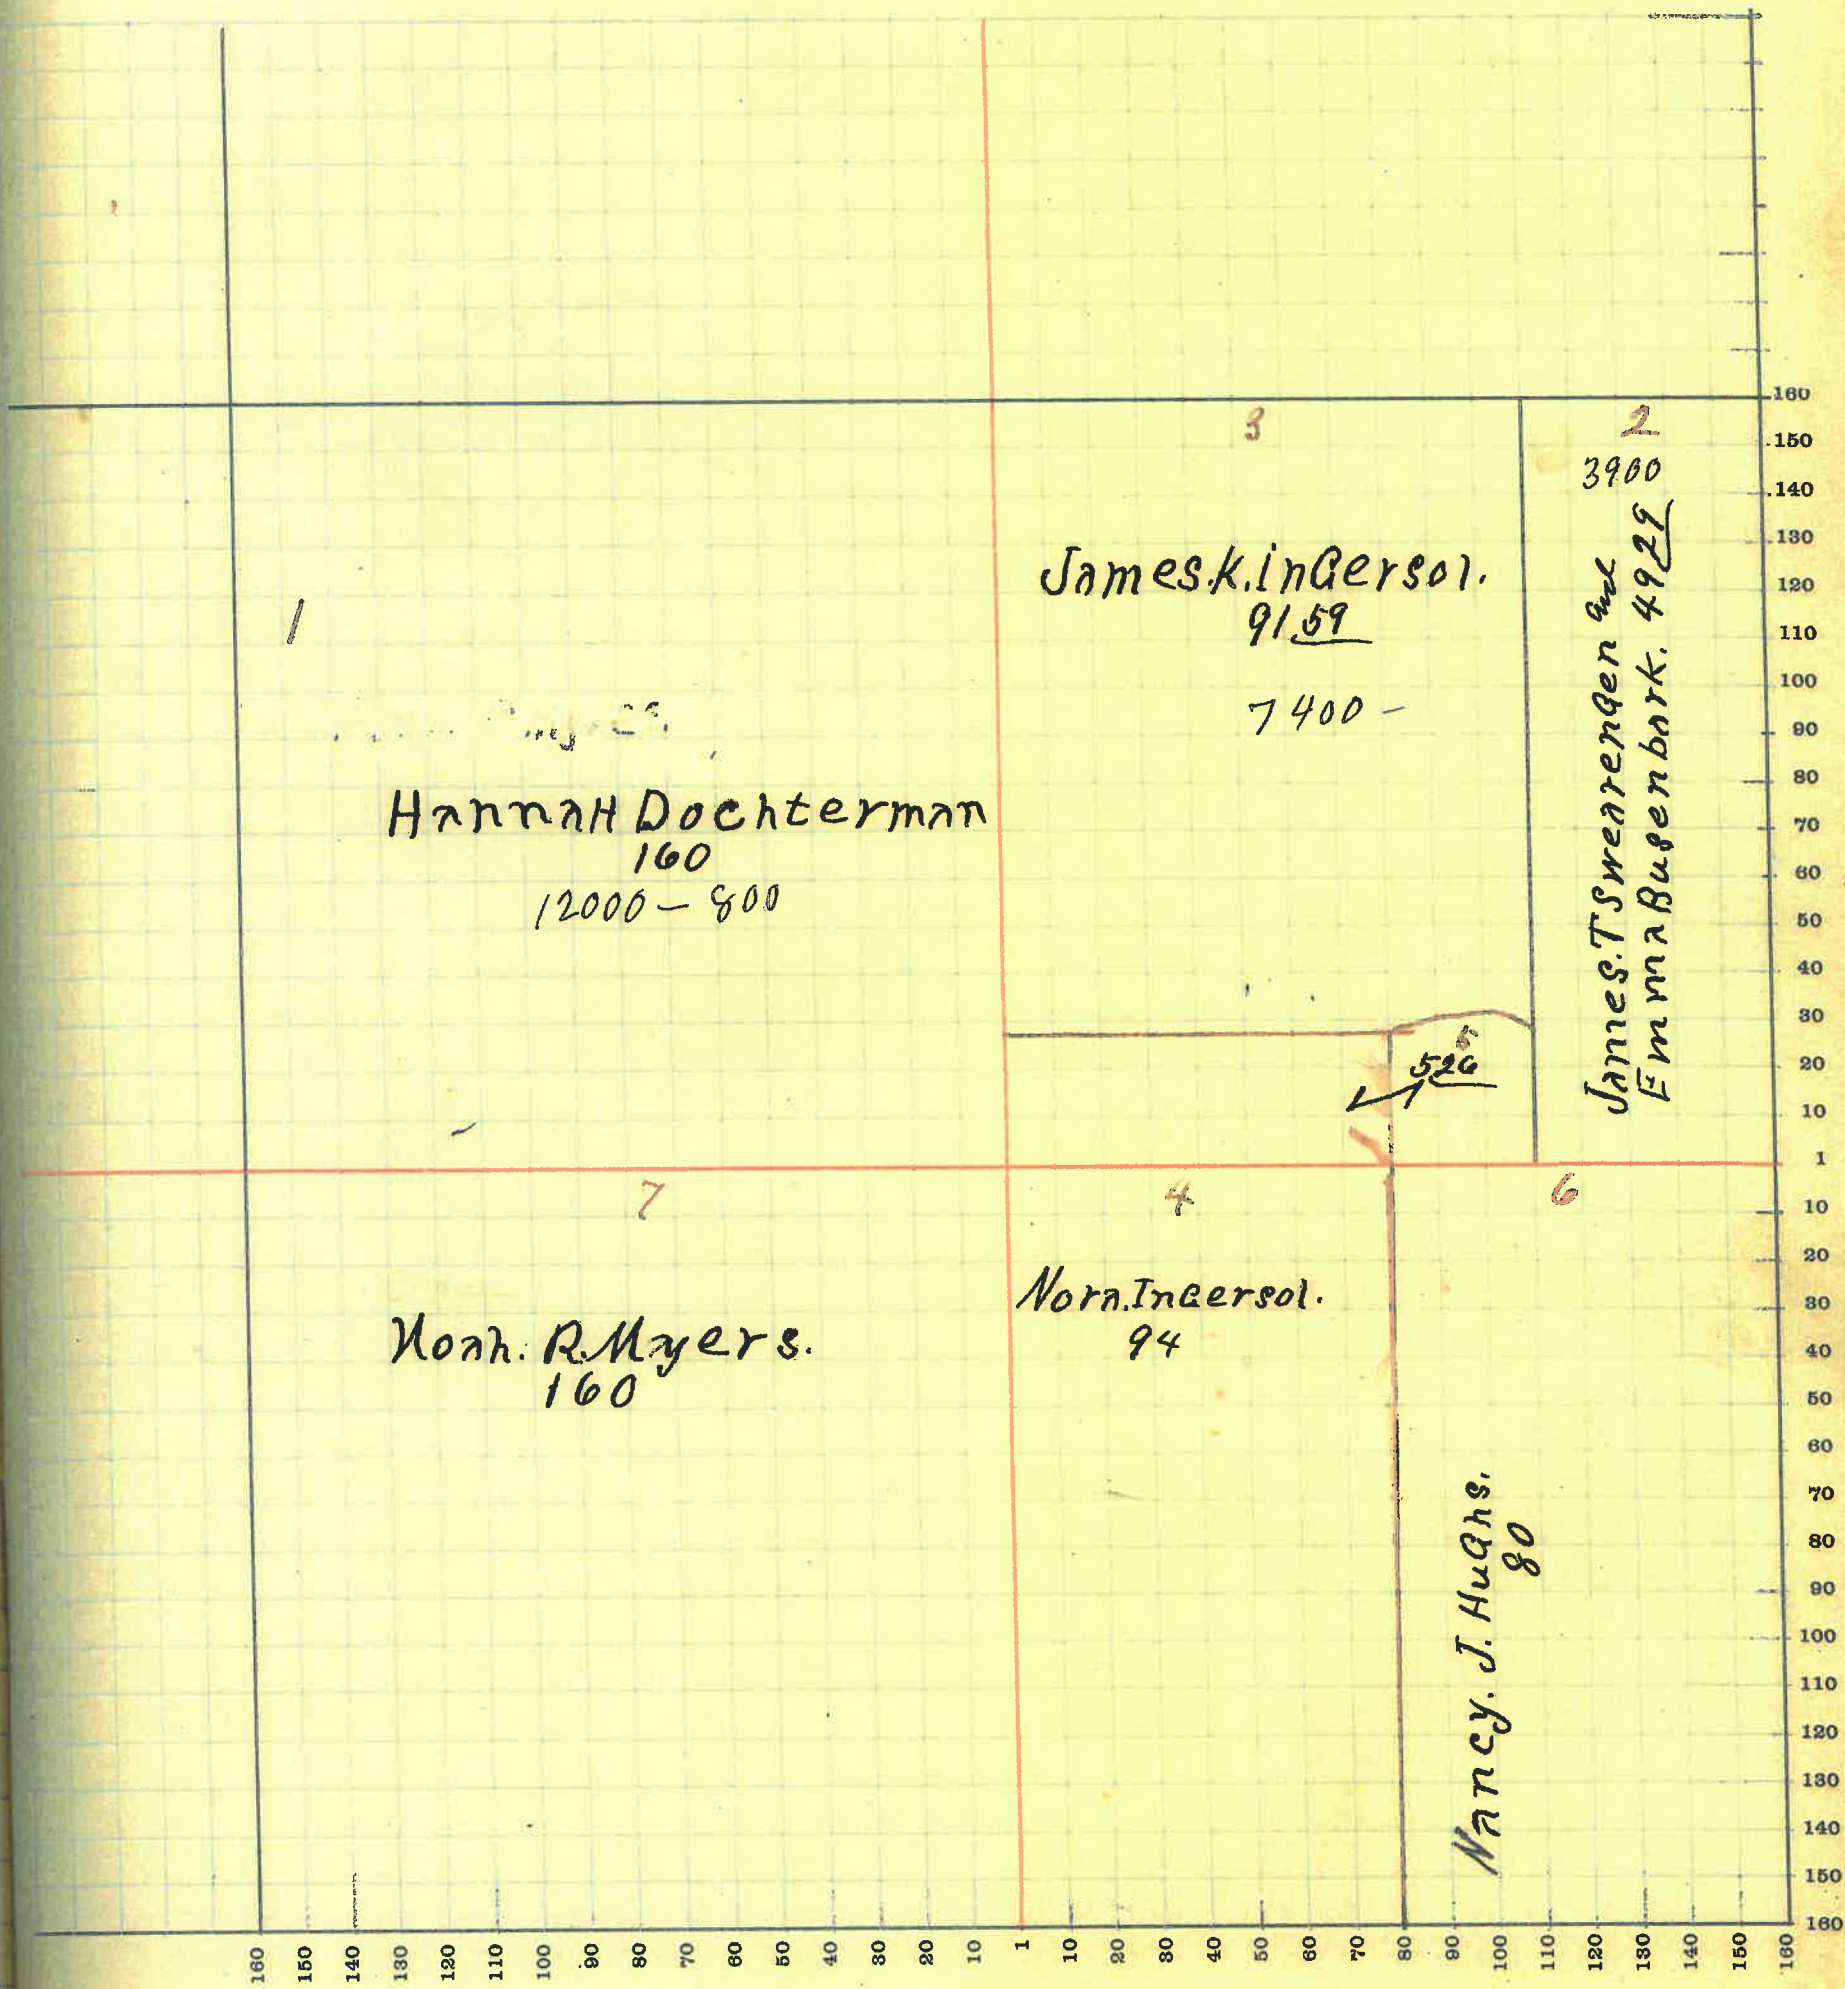 3
2
3900
James.K.inGersol.
91 59
7400 -
James.T SwearenGen and
Emma Busenbark. 49 29
1
Hannah Dochterman
160
12000 - 800
5
526
7
4
6
Noah. R. Myers.
160
Nora. InGersol.
94
Nancy. J. HuGhs.
80
160
150
140
130
120
110
100
90
80
70
60
50
40
30
20
10
1
10
20
30
40
50
60
70
80
90
100
110
120
130
140
150
160
160 150 140 130 120 110 100 90 80 70 60 50 40 30 20 10 1 10 20 30 40 50 60 70 80 90 100 110 120 130 140 150 160